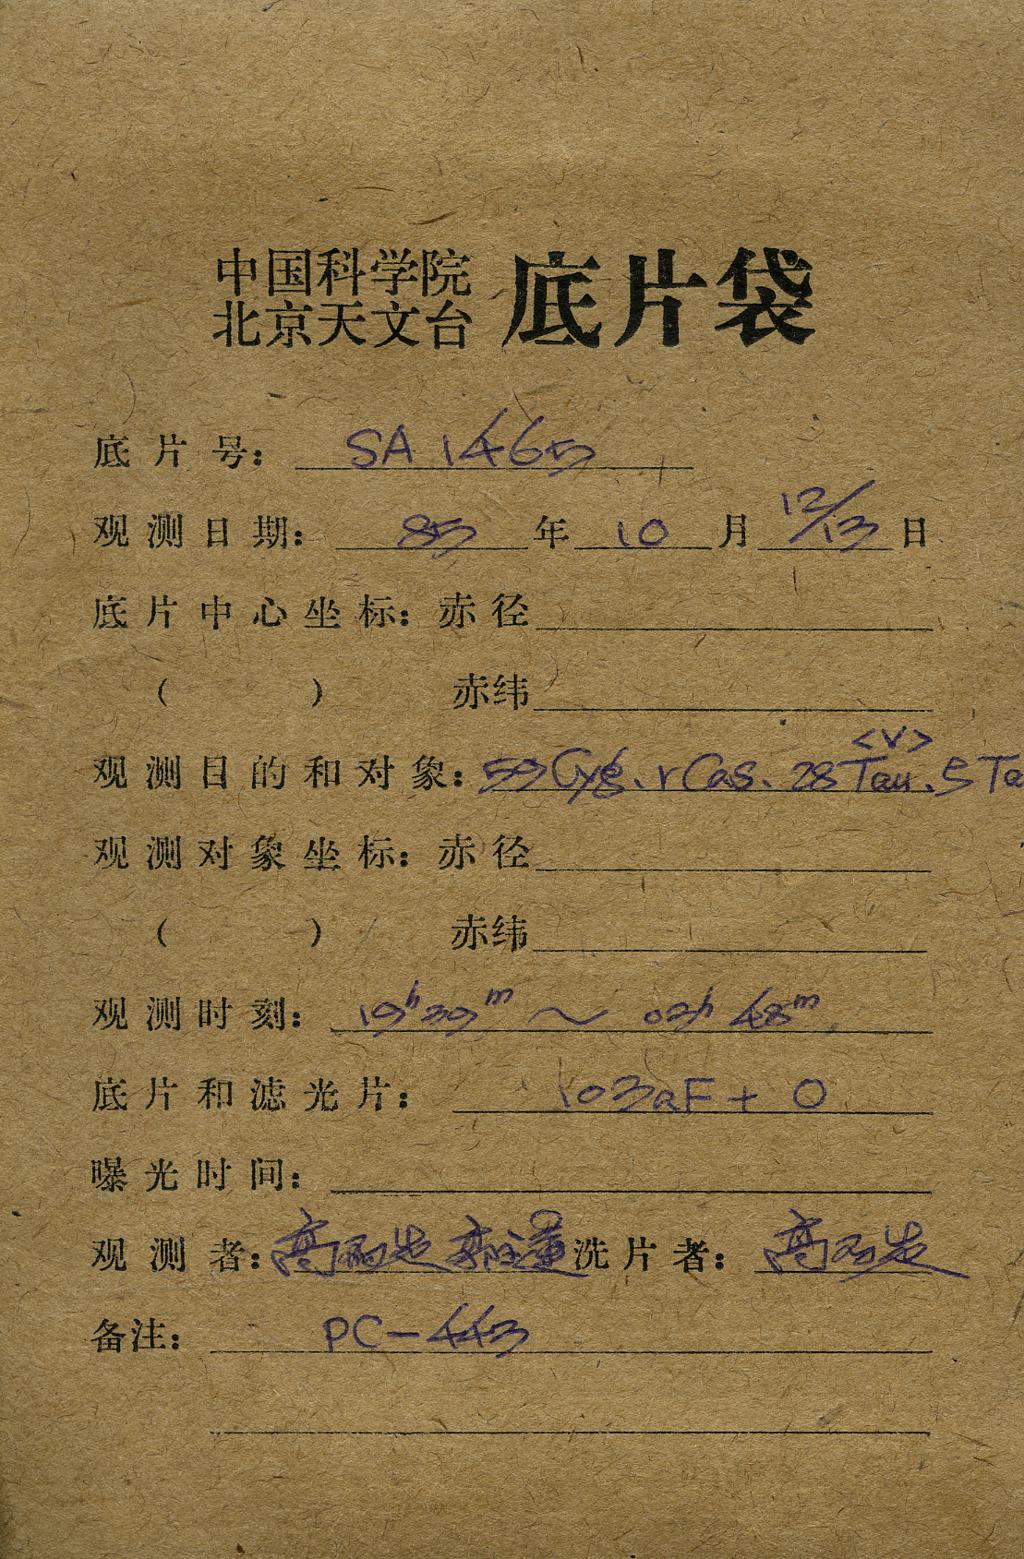 中国科学院
北京天文台 底片袋
底片号: SA 1465
观测日期: 85 年 10 月 12/13 日
底片中心坐标: 赤径
( ) 赤纬
<V>
观测目的和对象: 59 Cyg、r Cas、28 Tau、5 Ta
观测对象坐标: 赤径
( ) 赤纬
观测时刻: 19h 39m ~ 03h 48m
底片和滤光片: 103aF + O
曝光时间:
观测者: 洗片者:
备注: PC-443